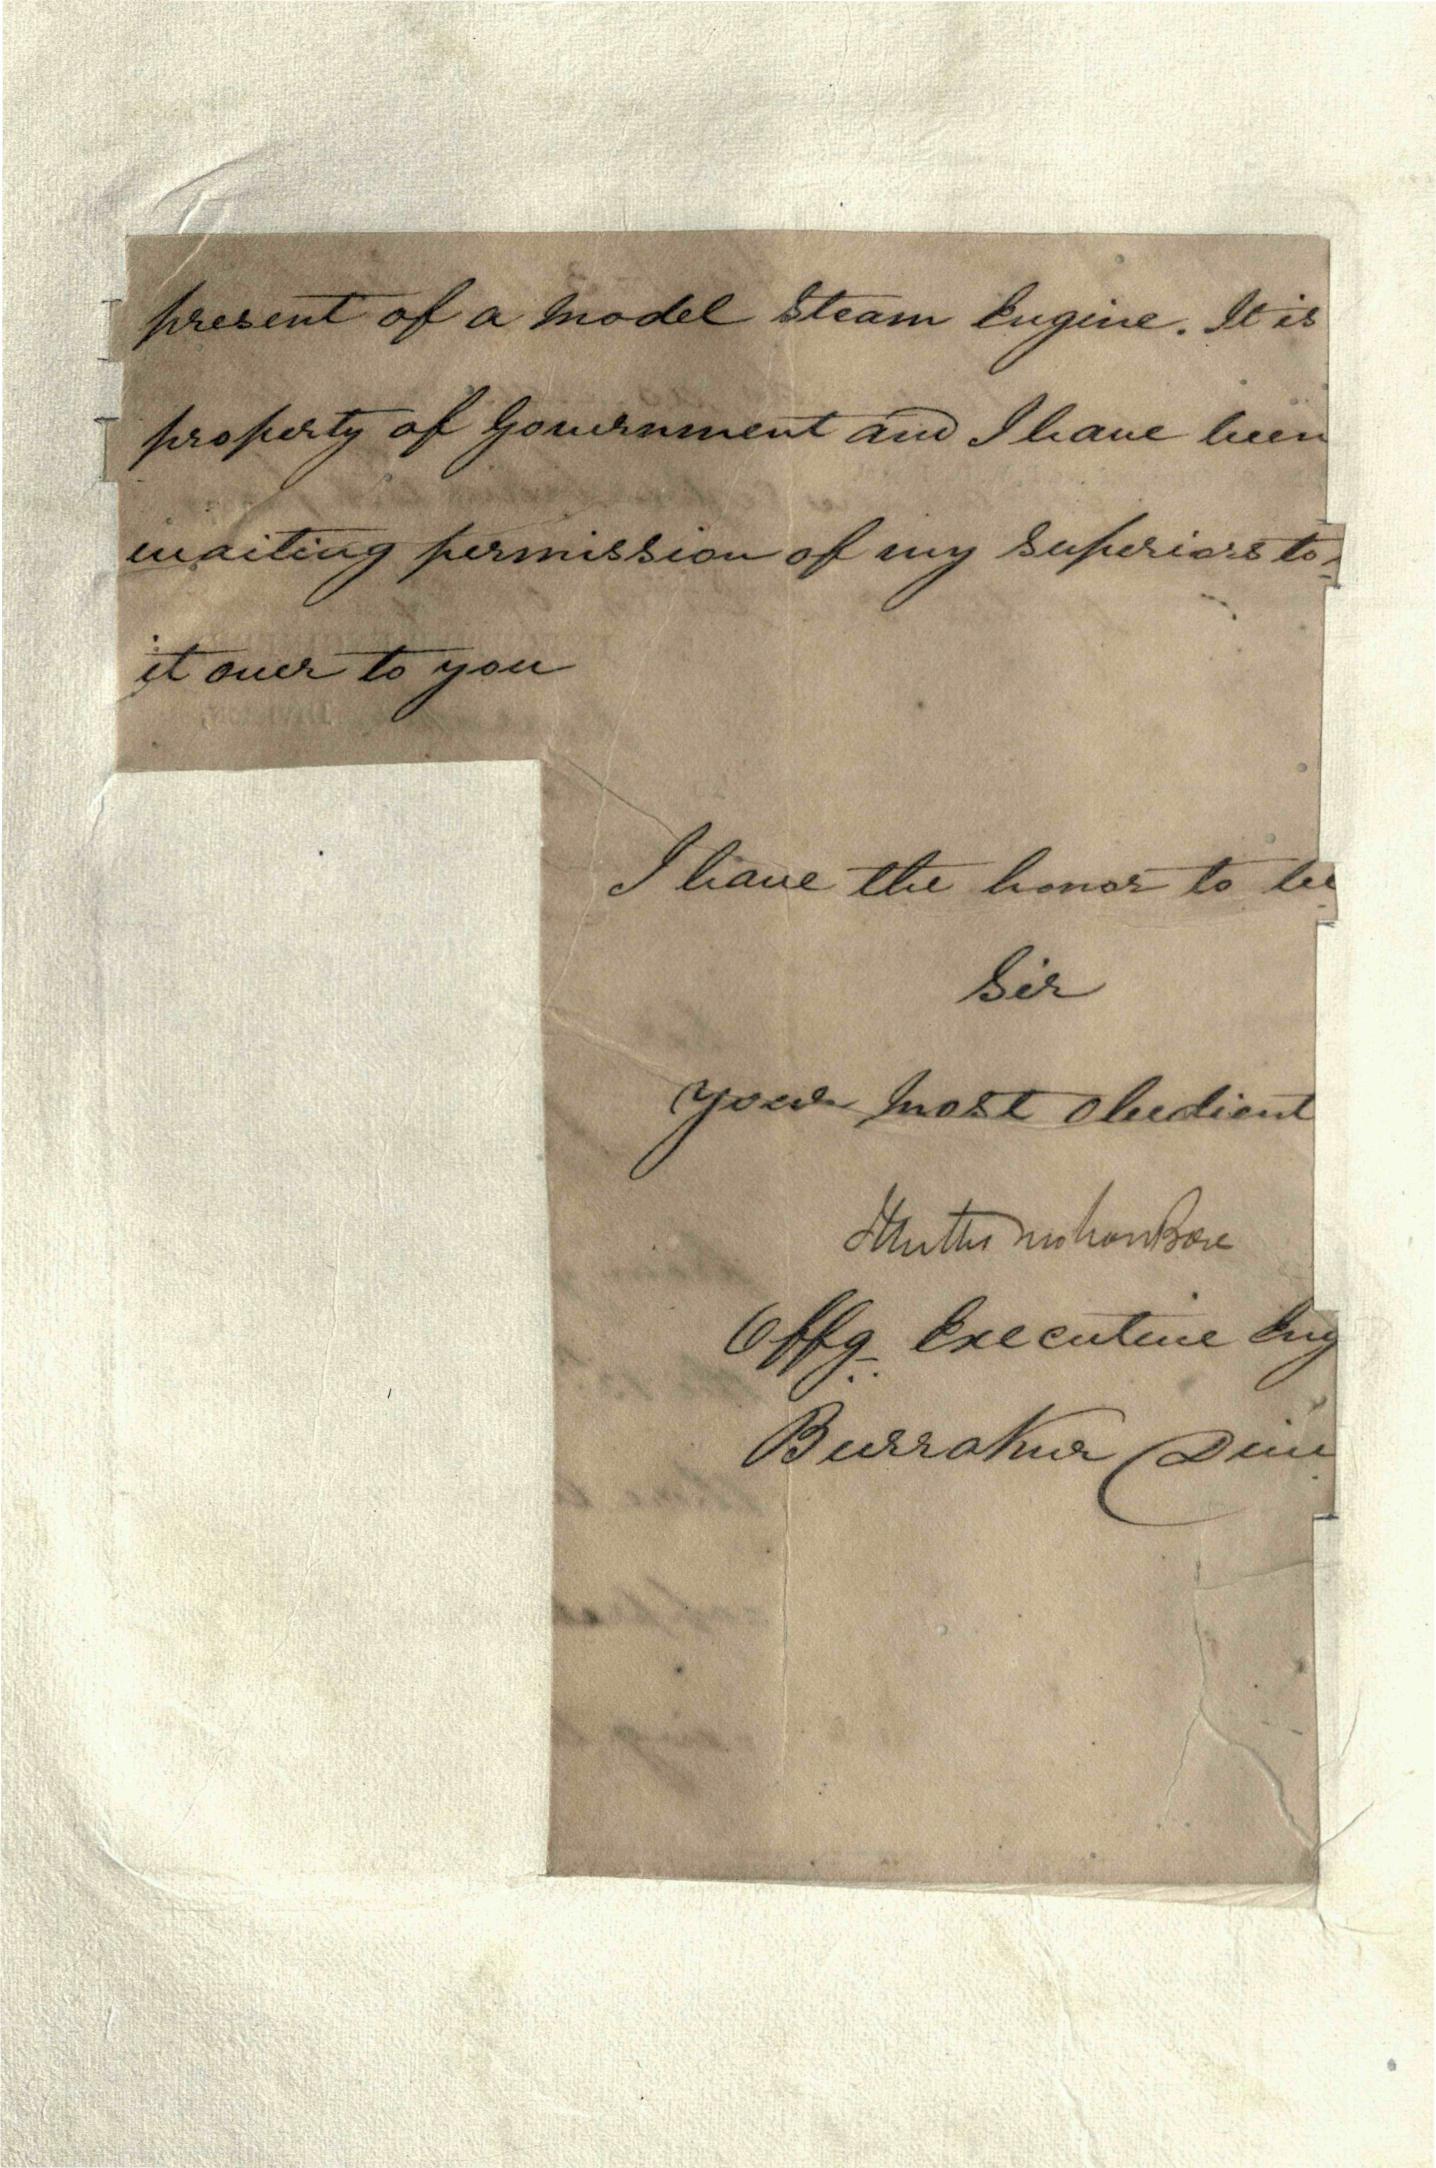 present of a model Steam Engine. It is
property of Government and I have been
waiting permission of my superiors to
it over to you
I have the honor to be
Sir
your most obedient
Bose
Offg. Executive Eng
Burrakur Divn